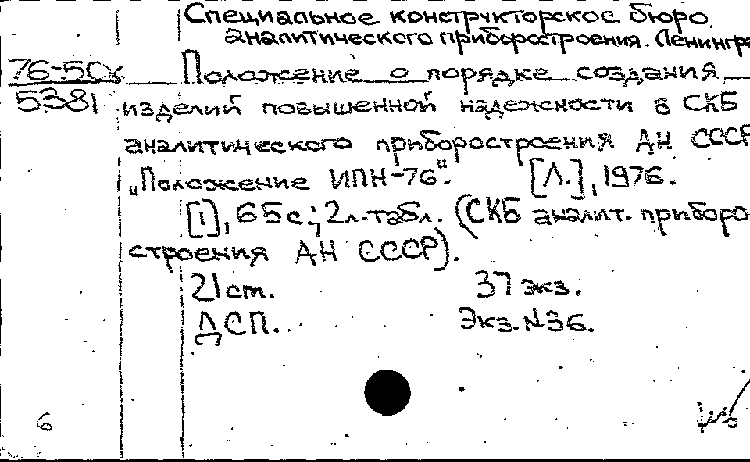 Специальное конструкторское бюро
аналитического приборостроения. (Ленингра
76-50к Положение о порядке создания
5381 изделий повышенной надежности в СКБ
аналитического приборостроения АН СССР
„Положение ИПН-76". [Л.], 1976.
[1], 65 с.; 2 л. табл. (СКБ аналит. приборо
строения АН СССР).
21 см. 37 экз.
ДСП. Экз. N36.
6